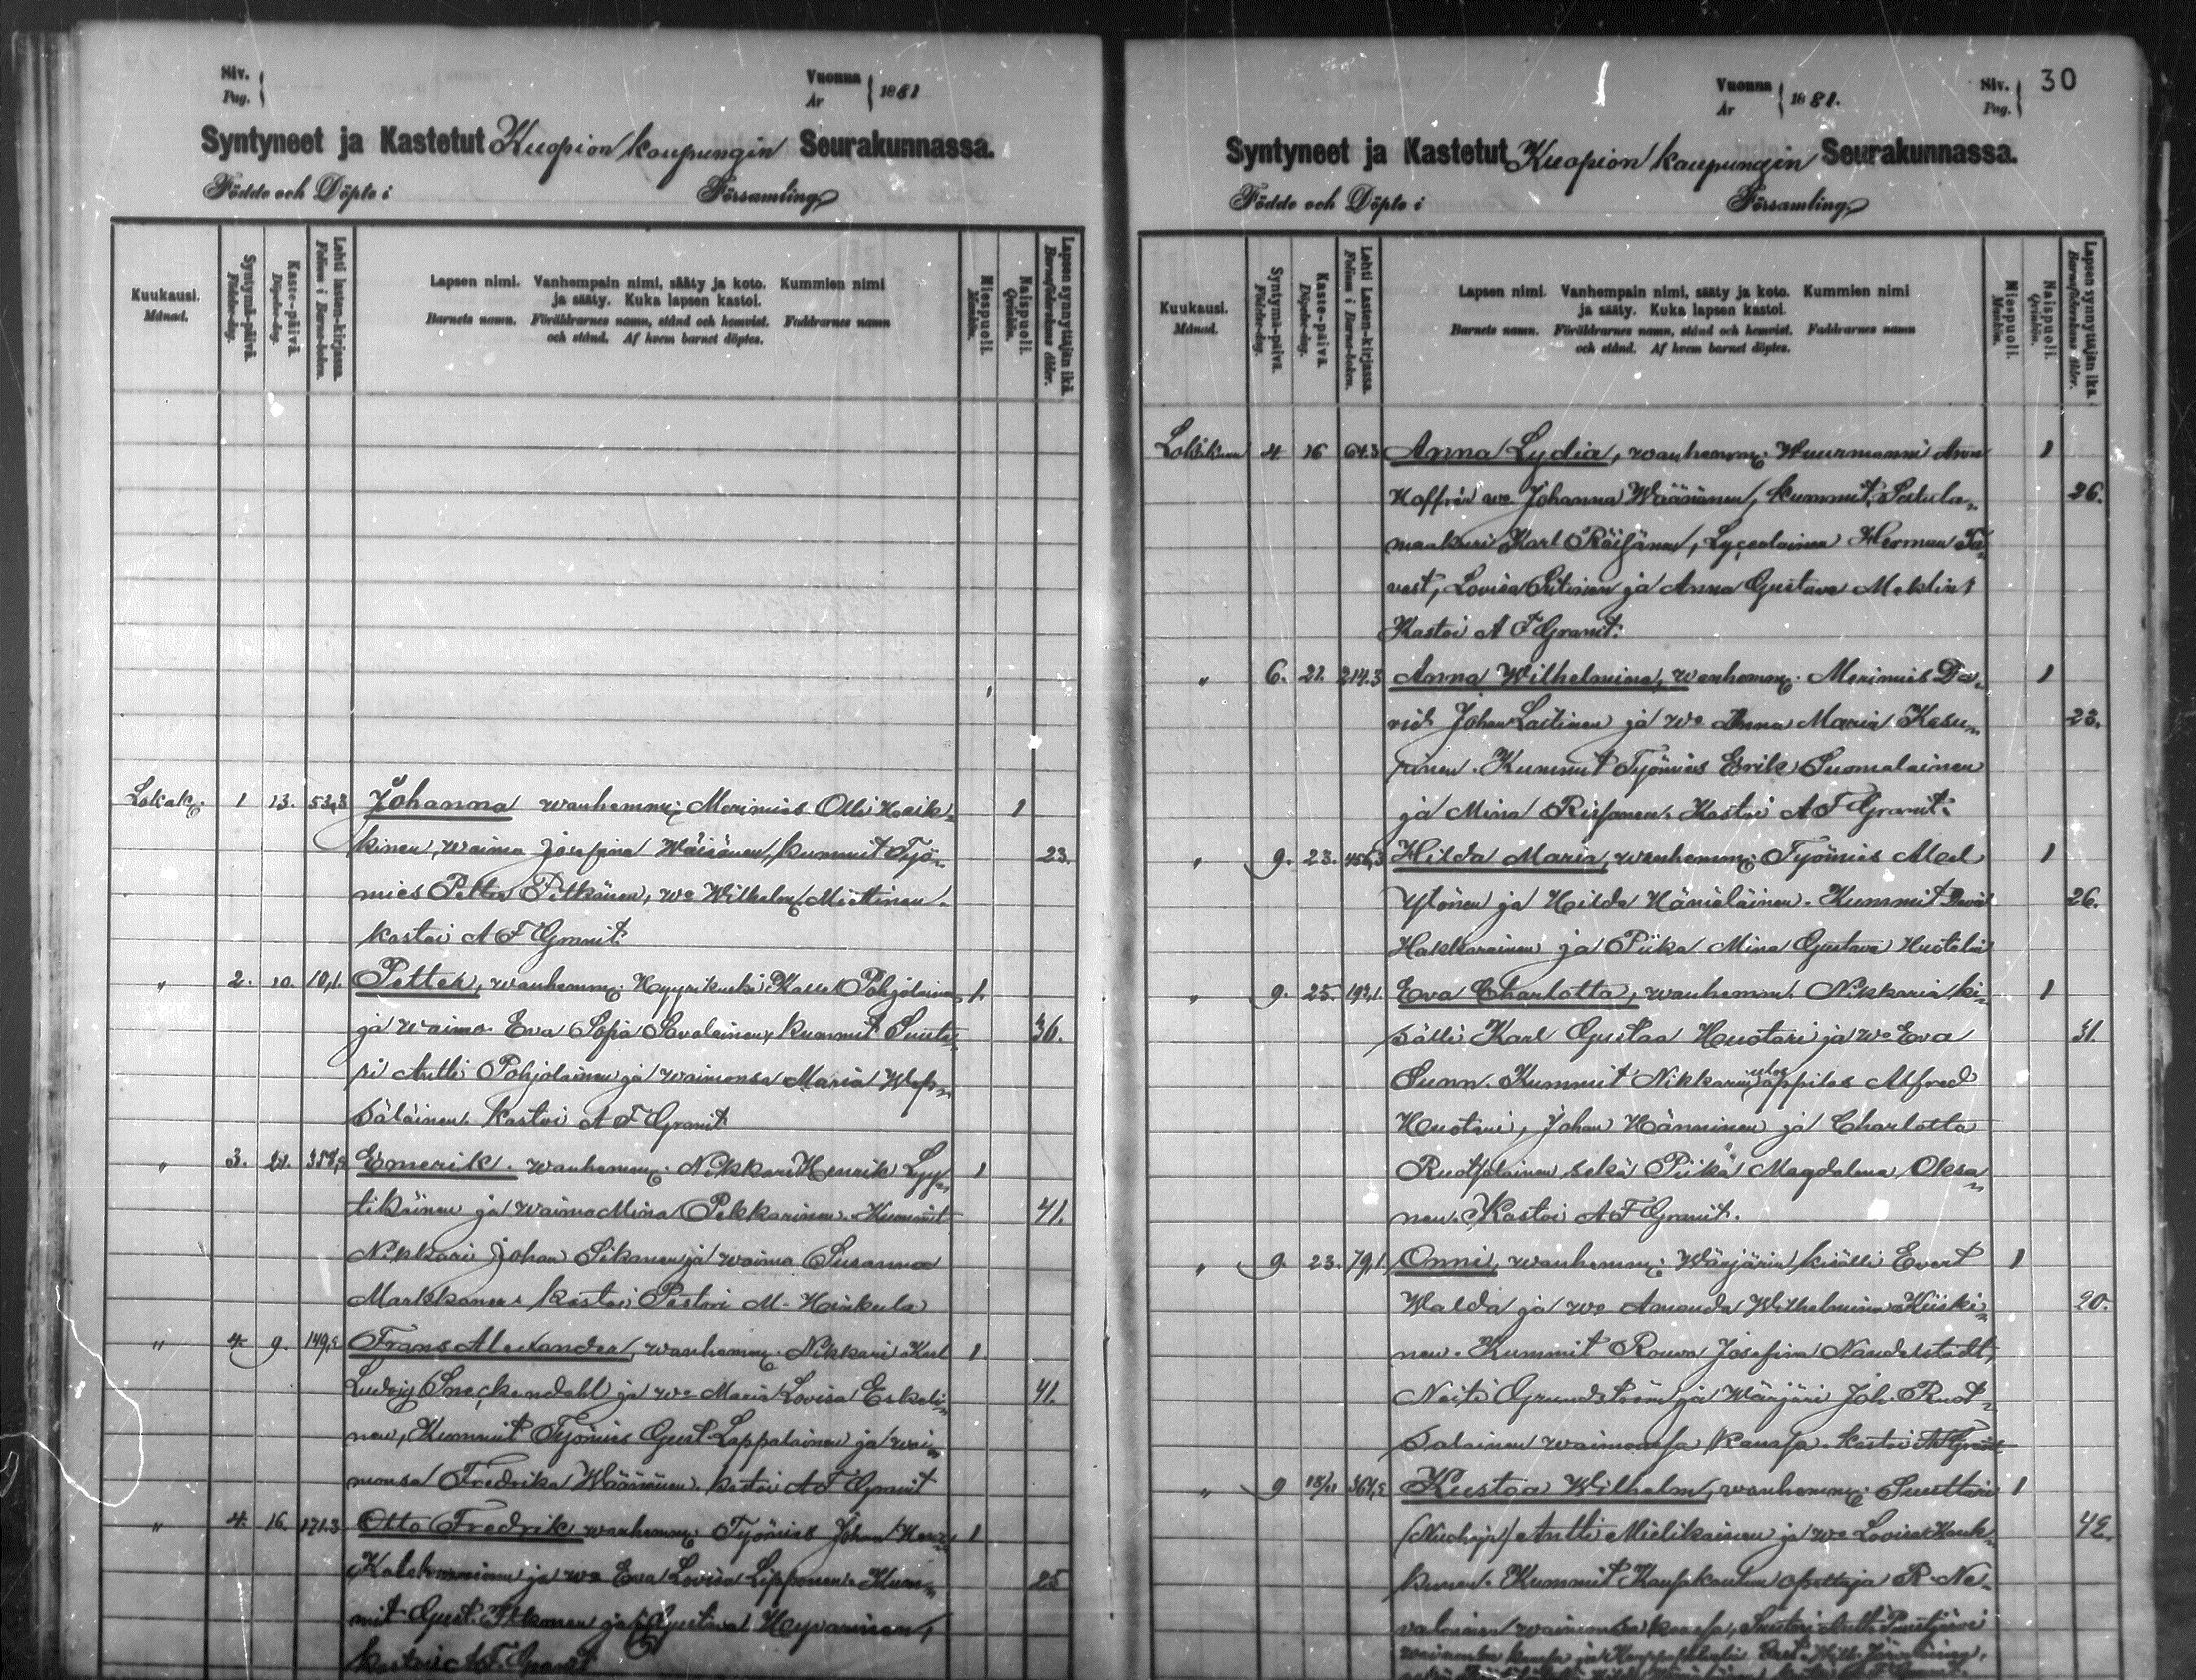 Siv.
Pag.
Vuonna
År
1881
Syntyneet ja Kastetut Kuopion kaupungin Seurakunnassa.
Födde och Döpte i Församling
Kuukausi.
Månad.
Syntymä-päivä.
Födelse-dag.
Kaste-päivä
Döpelse-dag.
Lehti lasten-kirjassa.
Folium i Barna-boken.
Lapsen nimi. Vanhempain nimi, sääty ja koto. Kummien nimi
ja sääty. Kuka lapsen kastoi.
Barnets namn. Föräldrarnes namn, stånd och hemvist. Faddrarnes namn
och stånd. Af hvem barnet döptes.
Miespuoli.
Mankön.
Naispuoli.
Qvinkön.
Lapsen synnyttäjän ikä.
Barnaföderskans ålder.
Lokak. 1 13. 53,3 Johanna wanhemm. Merimies Olli Heik- 1
kinen, waimo Josefina Wäisänen, kummit Työ- 23.
mies Petter Pitkänen, wo Wilhelm. Miettinen.
kastoi A F Granit.
" 2. 10. 10,1. Petter, wanhemm. Hyyrikuski Kalle Pohjolainen 1.
ja waimo Eva Sofia Savolainen, kummit Suuta- 36.
ri Antti Pohjolainen ja waimonsa Maria Wep-
säläinen. kastoi A F Granit
" 3. 21. Emerik. wanhemm. Nikkari Henrik Lyy- 1
tikäinen ja waimo Mina Pekkarinen. Kummit 41.
Nikkari Johan Sikanen ja waimo Susanna
Markkanen, kastoi Pastori M. Heinkula
" 4. 9. 149,5 Frans Alexander, wanhemm. Nikkari Karl 1
Ludvig Sneckendahl ja wo Maria Lovisa Eskeli- 41.
nen, Kummit Työmies Gust Lappalainen ja wai-
monsa Fredrika Wäänänen. kastoi A F Granit
" 4. 16. 171.3 Otto Fredrik wanhemm. Työmies Johan 1
ja wo Eva Lovisa Lipponen. Kum- 25
mit Gust. ja Gustava Heyvarinen,
kastoi A F Granit
Vuonna
År
1881.
Siv.
Pag.
30
Syntyneet ja Kastetut Kuopion kaupungin Seurakunnassa.
Födde och Döpte i Församling
Kuukausi.
Månad.
Syntymä-päivä.
Födelse-dag.
Kaste-päivä.
Döpelse-dag.
Lehti Lasten-kirjassa.
Folium i Barna-boken.
Lapsen nimi. Vanhempain nimi, sääty ja koto. Kummien nimi
ja sääty. Kuka lapsen kastoi.
Barnets namn. Föräldrarnes namn, stånd och hemvist. Faddrarnes namn
och stånd. Af hvem barnet döptes.
Miespuoli.
Mankön.
Naispuoli.
Qvinkön.
Lapsen synnyttäjän ikä.
Barnaföderskans ålder.
4. 16 64.3 Anna Lydia, wanhemm. Wuurmanni 1
Hoffrén wo Johanna Wäänänen, kummit, Satula- 26.
maakari Karl Räisänen, Lyceolainen Herman Ta-
vast, Lovisa ja Anna Gustava Meklin,
Kastoi A F Granit.
" 6. 21. 214.3 Anna Wilhelmina, wanhemm. Merimies Da- 1
vid Johan Laitinen ja wo Anna Maria Kasu- 23.
rinen. Kummit Työmies Erik Suomalainen
ja Mina Rissanen. Kastoi A F Granit.
" 9. 23. Hilda Maria, wanhemm. Työmies Abel 1
Ylönen ja Hilda Hänieläinen. Kummit David 26.
Hakkarainen ja Piika Mina Gustava Huotelin
" 9. 25. Eva Charlotta, wanhemm. Nikkarin ki- 1
sälli Karl Gustaa Huotari ja wo Eva 31.
Sunn. Kummit Nikkarin oppilas Alfred
Huotari, Johan Hänninen ja Charlotta
Ruotsalainen sekä Piika Magdalena Oksa-
nen. Kastoi A F Granit.
" 9. 23. 79,1 Onni, wanhemm. Wärjärin kisälli Evert 1
Walda ja wo Amanda Wilhelmina Kiiski- 20.
nen. Kummit Rouva Josefina Nandelstadt,
Neiti Grundström ja Wärjäri Joh. Ruot-
salainen waimonsa kanssa. kastoi A F Granit
" 9 18/11 364,5 Kustaa Wilhelm, wanhemm. Suuttari 1
Antti Mielikainen ja wo Lovisa Hauk- 42.
kunen. Kummit Kansakoulun opettaja R. Ne-
valainen waimonsa kanssa, Suutari Antti